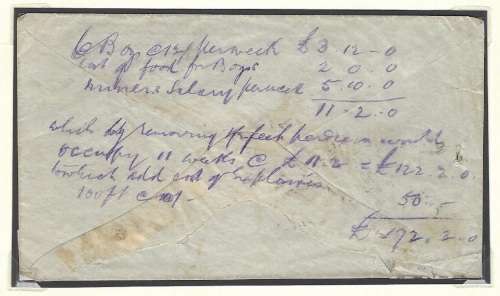 6 Boys @ 12/ per week £3 . 12 . 0
Cost of food for Boys 2 . 0 . 0
Miners Salary per week 5 . 10 . 0
11 . 2 . 0
which by removing feet per week would
occupy 11 weeks @ £11.2 = £122 . 2 . 0
to which add cost of explosives
100 ft @ 10/- 50
£172 . 2 . 0